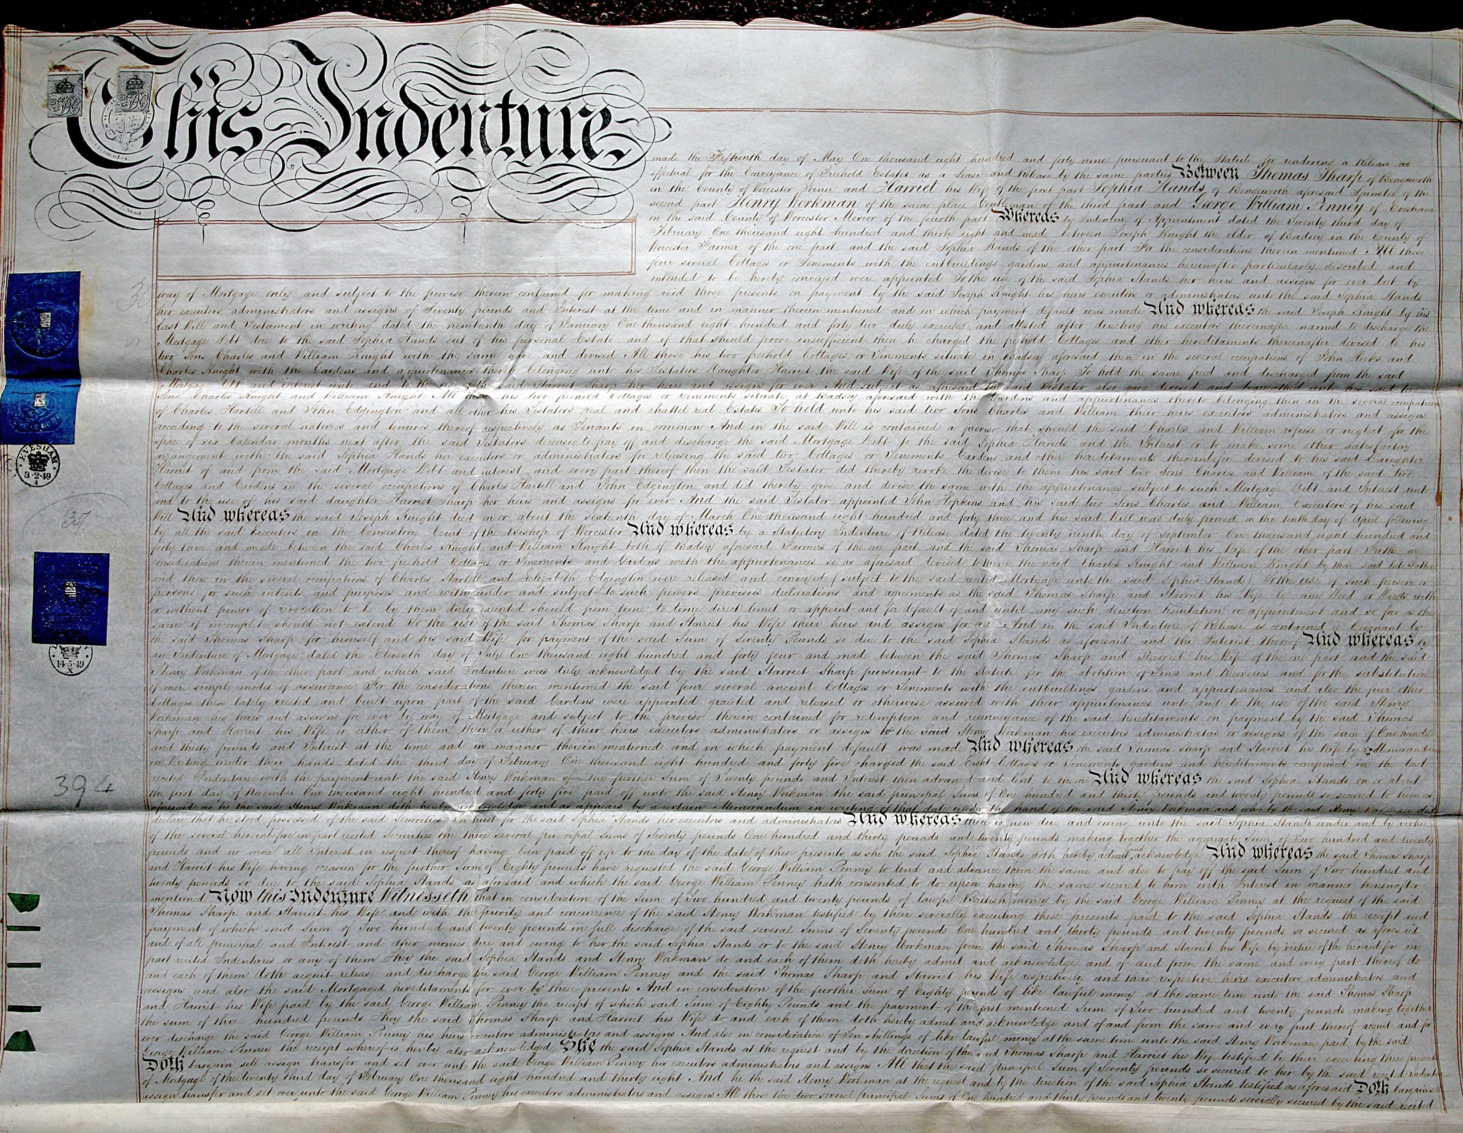 This Indenture
made the Fifteenth day of May One thousand eight hundred and forty nine pursuant to the Statute for rendering a Release as
effectual for the Conveyance of Freehold Estates as a Lease and Release by the same parties Between Thomas Sharp of Bengeworth
in the County of Worcester and Harriet his Wife of the first part Sophia Hands of Bengeworth aforesaid Spinster of the
second part Henry Workman of the same place Gentleman of the third part and George William Penney of Evesham
in the said County of Worcester Mercer of the fourth part Whereas by Indenture of Appointment dated the Twenty third day of
February One thousand eight hundred and thirty eight and made between Joseph Knight the elder of Badsey in the County of
Worcester Farmer of the one part and the said Sophia Hands of the other part For the considerations therein mentioned All those
four several Cottages or Tenements with the outbuildings gardens and appurtenances hereinafter particularly described and
intended to be hereby conveyed were appointed To the use of the said Sophia Hands her heirs and assigns for ever but by
way of Mortgage only and subject to the proviso therein contained for making void those presents on payment by the said Joseph Knight his heirs executors or administrators unto the said Sophia Hands
her executors administrators and assigns of Seventy pounds and Interest at the time and in manner therein mentioned and in which payment default was made And whereas the said Joseph Knight by his
last Will and Testament in writing dated the nineteenth day of January One thousand eight hundred and forty two duly executed and attested after directing his executors thereinafter named to discharge the
Mortgage debt due to the said Sophia Hands out of his personal Estate and if that should prove insufficient then he charged the freehold Cottages and other hereditaments thereinafter devised to his
two Sons Charles and William Knight with the same and devised All those his two freehold Cottages or Tenements situate in Badsey aforesaid then in the several occupations of John Hobbs and
Charles Knight with the Gardens and appurtenances thereto belonging unto his Testators Daughter Harriet the said Wife of the said Thomas Sharp To hold the same freed and discharged from the said
of Charles Hartell and John Edgington and all other his Testators real and chattel real Estates To hold unto his said two Sons Charles and William their heirs executors administrators and assigns
according to the several natures and tenures thereof respectively as Tenants in common And in the said Will is contained a proviso that should the said Charles and William refuse or neglect for the
space of six Calendar months next after the said Testators decease to pay off and discharge the said Mortgage Debt to the said Sophia Hands and the Interest or to make some other satisfactory
arrangement with the said Sophia Hands her executors or administrators for releasing the said two Cottages or Tenements Gardens and other hereditaments thereinbefore devised to his said Daughter
Harriet of and from the said Mortgage Debt and interest and every part thereof then the said Testator did thereby revoke the devise to them his said two Sons Charles and William of the said two
Cottages and Gardens in the several occupations of Charles Hartell and John Edgington and did thereby give and devise the same with the appurtenances subject to such Mortgage Debt and Interest unto
and to the use of his said daughter Harriet Sharp her heirs and assigns for ever And the said Testator appointed John Hopkins and his said two Sons Charles and William Executors of his said
Will And whereas the said Joseph Knight died on or about the sixteenth day of March One thousand eight hundred and forty three and his said Will was duly proved on the tenth day of April following
by all the said Executors in the Consistory Court of the Bishop of Worcester And whereas by a Statutory Indenture of Release dated the twenty ninth day of September One thousand eight hundred and
forty three and made between the said Charles Knight and William Knight both of Badsey aforesaid Farmers of the one part and the said Thomas Sharp and Harriet his Wife of the other part For the
considerations therein mentioned the two freehold Cottages or Tenements and Gardens with the appurtenances so as aforesaid devised to them the said Charles Knight and William Knight by their said late Father
and then in the several occupations of Charles Hartell and Elizabeth Edgington were released and conveyed (subject to the said recited Mortgage unto the said Sophia Hands) To the use of such person or
persons for such intents and purposes and with under and subject to such powers provisoes declarations and agreements as the said Thomas Sharp and Harriet his Wife by any Deed or Deeds with
or without power of revocation to be by them duly executed should from time to time direct limit or appoint and in default of and until any such direction limitation or appointment and so far as the
same if incomplete should not extend To the use of the said Thomas Sharp and Harriet his Wife their heirs and assigns for ever And in the said Indenture of Release is contained a Covenant by
the said Thomas Sharp for himself and his said Wife for payment of the said Sum of seventy Pounds so due to the said Sophia Hands as aforesaid and the Interest thereof And whereas by
an Indenture of Mortgage dated the Eleventh day of July One thousand eight hundred and forty four and made between the said Thomas Sharp and Harriet his Wife of the one part and the said
Henry Workman of the other part and which said Indenture was duly acknowledged by the said Harriet Sharp pursuant to the Statute for the abolition of Fines and Recoveries and for the substitution
of more simple modes of assurance For the considerations therein mentioned the said four several ancient Cottages or Tenements with the outbuildings gardens and appurtenances and also the four other
Cottages then lately erected and built upon part of the said Gardens were appointed granted and released or otherwise assured with their appurtenances unto and to the use of the said Henry
Workman his heirs and assigns for ever by way of Mortgage and subject to the proviso therein contained for redemption and reconveyance of the said hereditaments on payment by the said Thomas
Sharp and Harriet his Wife or either of them their or either of their heirs executors administrators or assigns to the said Henry Workman his executors administrators or assigns of the sum of One hundred
and thirty pounds and Interest at the time and in manner therein mentioned and in which payment default was made And whereas the said Thomas Sharp and Harriet his Wife by Memorandum
in writing under their hands dated the third day of February One thousand eight hundred and forty five charged the said Eight Cottages or Tenements gardens and hereditaments comprised in the last
recited Indenture with the payment unto the said Henry Workman of the further Sum of Twenty pounds and Interest then advanced and lent to them And whereas the said Sophia Hands on or about
the first day of November One thousand eight hundred and forty five paid off unto the said Henry Workman the said principal Sums of One hundred and thirty pounds and twenty pounds so secured to him as
aforesaid as he the said Henry Workman doth hereby acknowledge and as appears by a certain Memorandum in writing of that date under the hand of the said Henry Workman and whereby the said Henry Workman did
declare that he stood possessed of the said Securities in trust for the said Sophia Hands her executors and administrators And whereas there is now due and owing unto the said Sophia Hands under and by virtue
of the several hereinbefore in part recited Securities the three several principal Sums of Seventy pounds One hundred and thirty pounds and twenty pounds making together the aggregate Sum of Two hundred and twenty
pounds and no more all interest in respect thereof having been paid off up to the day of the date of these presents as she the said Sophia Hands doth hereby admit and acknowledge And whereas the said Thomas Sharp
and Harriet his Wife having occasion for the further Sum of Eighty pounds have requested the said George William Penney to lend and advance them the same and also to pay off the said Sum of Two hundred and
twenty pounds so due to the said Sophia Hands as aforesaid and which the said George William Penney hath consented to do upon having the same secured to him with Interest in manner hereinafter
mentioned Now this Indenture Witnesseth that in consideration of the Sum of Two hundred and twenty pounds of lawful British money by the said George William Penney at the request of the said
Thomas Sharp and Harriet his Wife and with the privity and concurrence of the said Henry Workman testified by their severally executing these presents paid to the said Sophia Hands the receipt and
payment of which said Sum of Two hundred and twenty pounds in full discharge of the said several Sums of Seventy pounds One hundred and thirty pounds and twenty pounds so secured as aforesaid
and of all principal and Interest and other monies due and owing to her the said Sophia Hands or to the said Henry Workman from the said Thomas Sharp and Harriet his Wife by virtue of the hereinbefore in
part recited Indentures or any of them They the said Sophia Hands and Henry Workman do and each of them doth hereby admit and acknowledge and of and from the same and every part thereof do
and each of them doth acquit release and discharge the said George William Penney and the said Thomas Sharp and Harriet his Wife respectively and their respective heirs executors administrators and
assigns and also the said Mortgaged hereditaments for ever by these presents And in consideration of the further Sum of Eighty pounds of like lawful money at the same time unto the said Thomas Sharp
and Harriet his Wife paid by the said George William Penney the receipt of which said Sum of Eighty Pounds and the payment of the first mentioned Sum of Two hundred and twenty pounds making together
the sum of Three hundred pounds They the said Thomas Sharp and Harriet his Wife do and each of them doth hereby admit and acknowledge and of and from the same and every part thereof acquit and for
ever discharge the said George William Penney his heirs executors administrators and assigns And also in consideration of Ten shillings of like lawful money at the same time unto the said Henry Workman paid by the said
George William Penney the receipt whereof is hereby also acknowledged She the said Sophia Hands at the request and by the direction of the said Thomas Sharp and Harriet his Wife testified by their executing these presents
Doth bargain sell assign transfer and set over unto the said George William Penney his executors administrators and assigns All that the said principal Sum of Seventy pounds so secured to her by the said recited Indenture
of Mortgage of the twenty third day of February One thousand eight hundred and thirty eight And he the said Henry Workman at the request and by the direction of the said Sophia Hands testified as aforesaid Doth bargain
assign transfer and set over unto the said George William Penney his executors administrators and assigns All those the two several principal Sums of One hundred and thirty pounds and twenty pounds severally secured by the said recited
EVESHAM
3-2-49
37
14-5-49
394